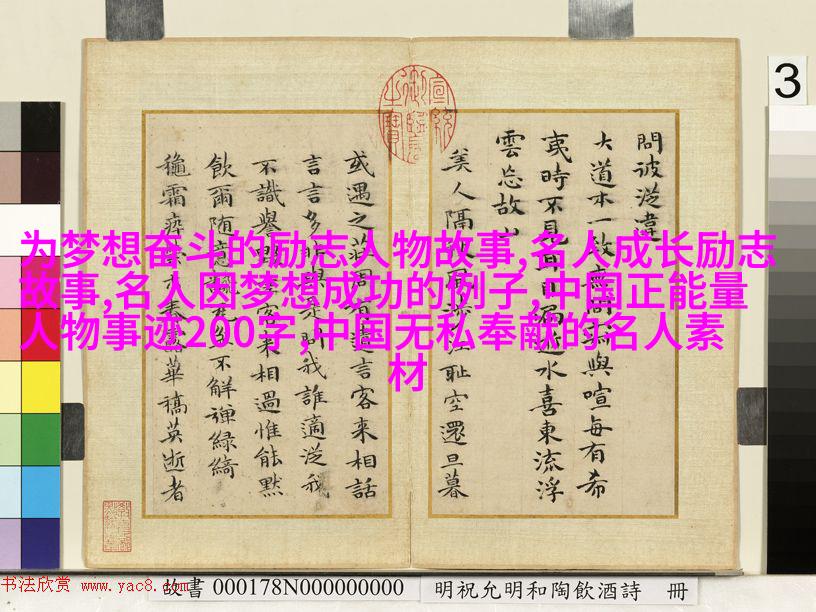 為夢想奋斗的励志人物故事,名人成长励志
故事,名人因梦想成功的例子,中国正能量
人物事迹200字,中国无私奉献的名人素
材
3
宣統御覽之寶
問彼從違
大道本一致 與喧每有希
夷時不見 水喜東流浮
雲忘故山
美人隔 恥空還旦暮
或遇之莊周有遺言客來相話
言言多 我誰適從我
不識譽 客來相過惟能默
飲爾隨意 不解彈綠綺
穐霜瘁 華稿英逝者
书法欣赏 www.yac8.com
故書 000178N000000000
明祝允明和陶飲酒詩 冊